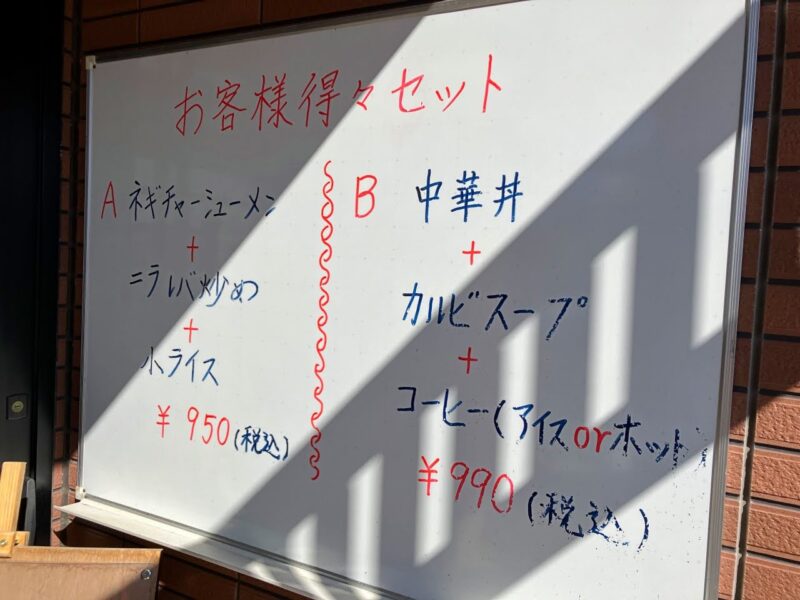 お客様得々セット
A ネギチャーシューメン
+
ニラレバ炒め
+
小ライス
¥950(税込)
B 中華丼
+
カルビスープ
+
コーヒー(アイスorホット)
¥990(税込)